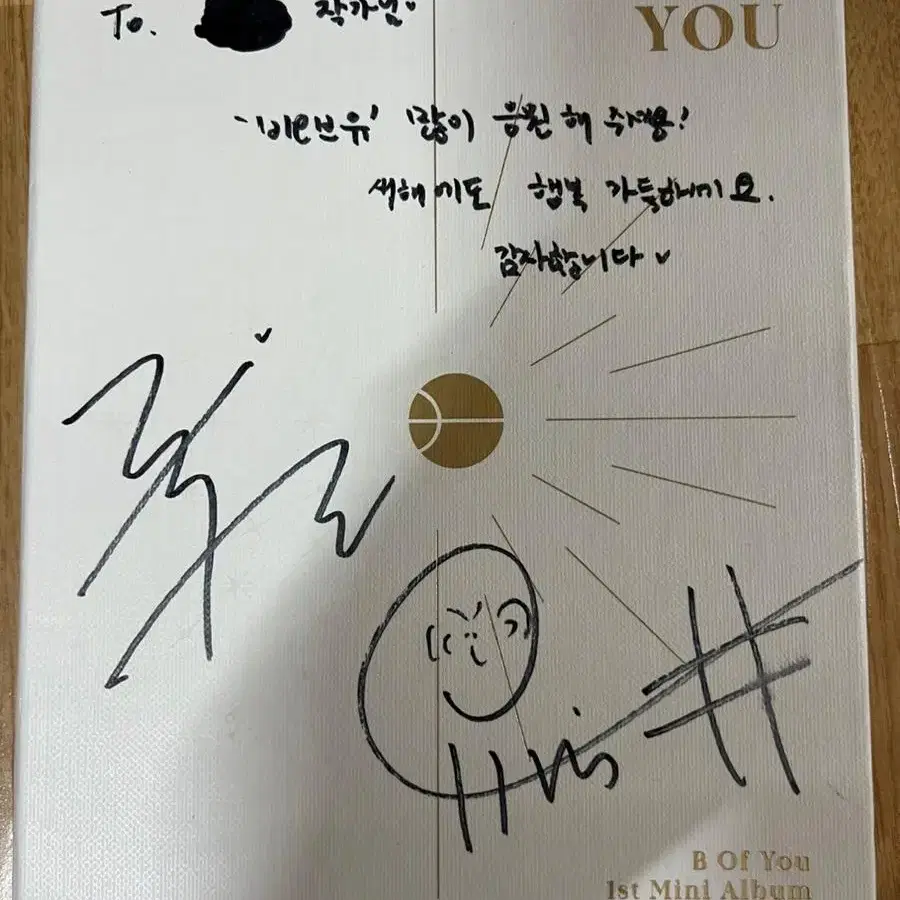 To. 작가님.
YOU
'비오브유' 많이 응원해 주세용!
새해에도 행복 가득하세요.
감사합니다
B Of You
1st Mini Album